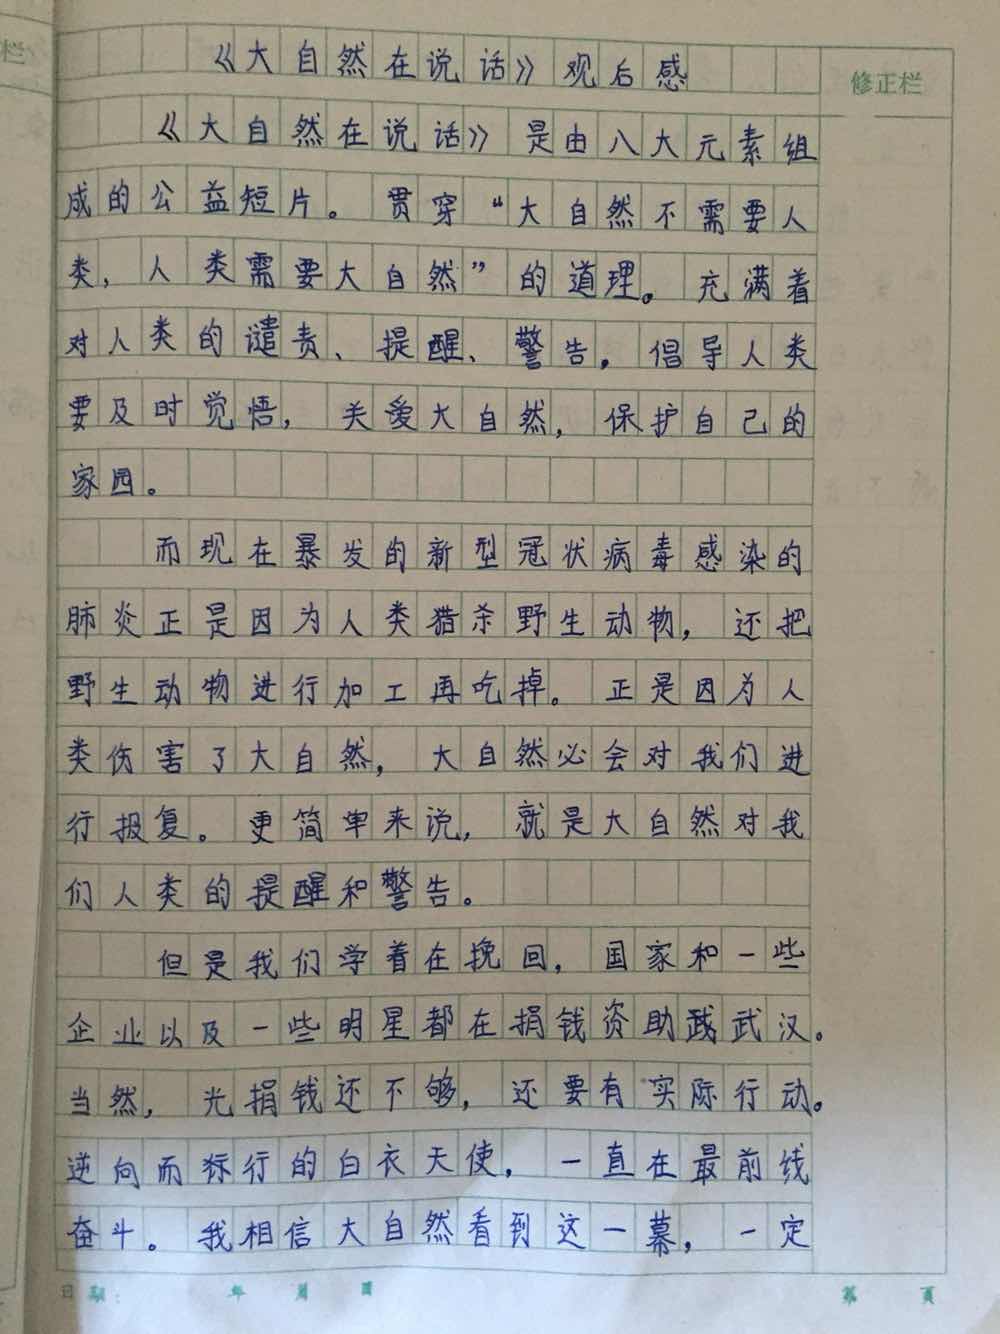 《大自然在说话》观后感
修正栏
《大自然在说话》是由八大元素组
成的公益短片。贯穿“大自然不需要人
类，人类需要大自然”的道理。充满着
对人类的谴责、提醒、警告。倡导人类
要及时觉悟，关爱大自然，保护自己的
家园。
而现在暴发的新型冠状病毒感染的
肺炎正是因为人类猎杀野生动物，还把
野生动物进行加工再吃掉。正是因为人
类伤害了大自然，大自然必会对我们进
行报复。更简单来说，就是大自然对我
们人类的提醒和警告。
但是我们学着在挽回，国家和一些
企业以及一些明星都在捐钱资助武汉。
当然，光捐钱还不够，还要有实际行动。
逆向而行的白衣天使，一直在最前线
奋斗。我相信大自然看到这一幕，一定
日期： 年 月 日 第 頁